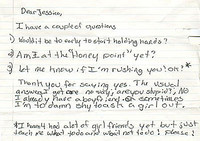 Dear Jessica,
I have a couple of questions
1) Would it be to early to start holding hands?
2) Am I at the "Honey point" yet?
3) let me know if I'm rushing you on!*
Thank you for saying yes. The usual
answers I get are no way, are you stupid?, NO
I already have a boyfriend or sometimes
I'm to damn shy to ask a girl out.
*I haven't had alot of girlfriends yet but just
teach me what to do and what not to do! Please!